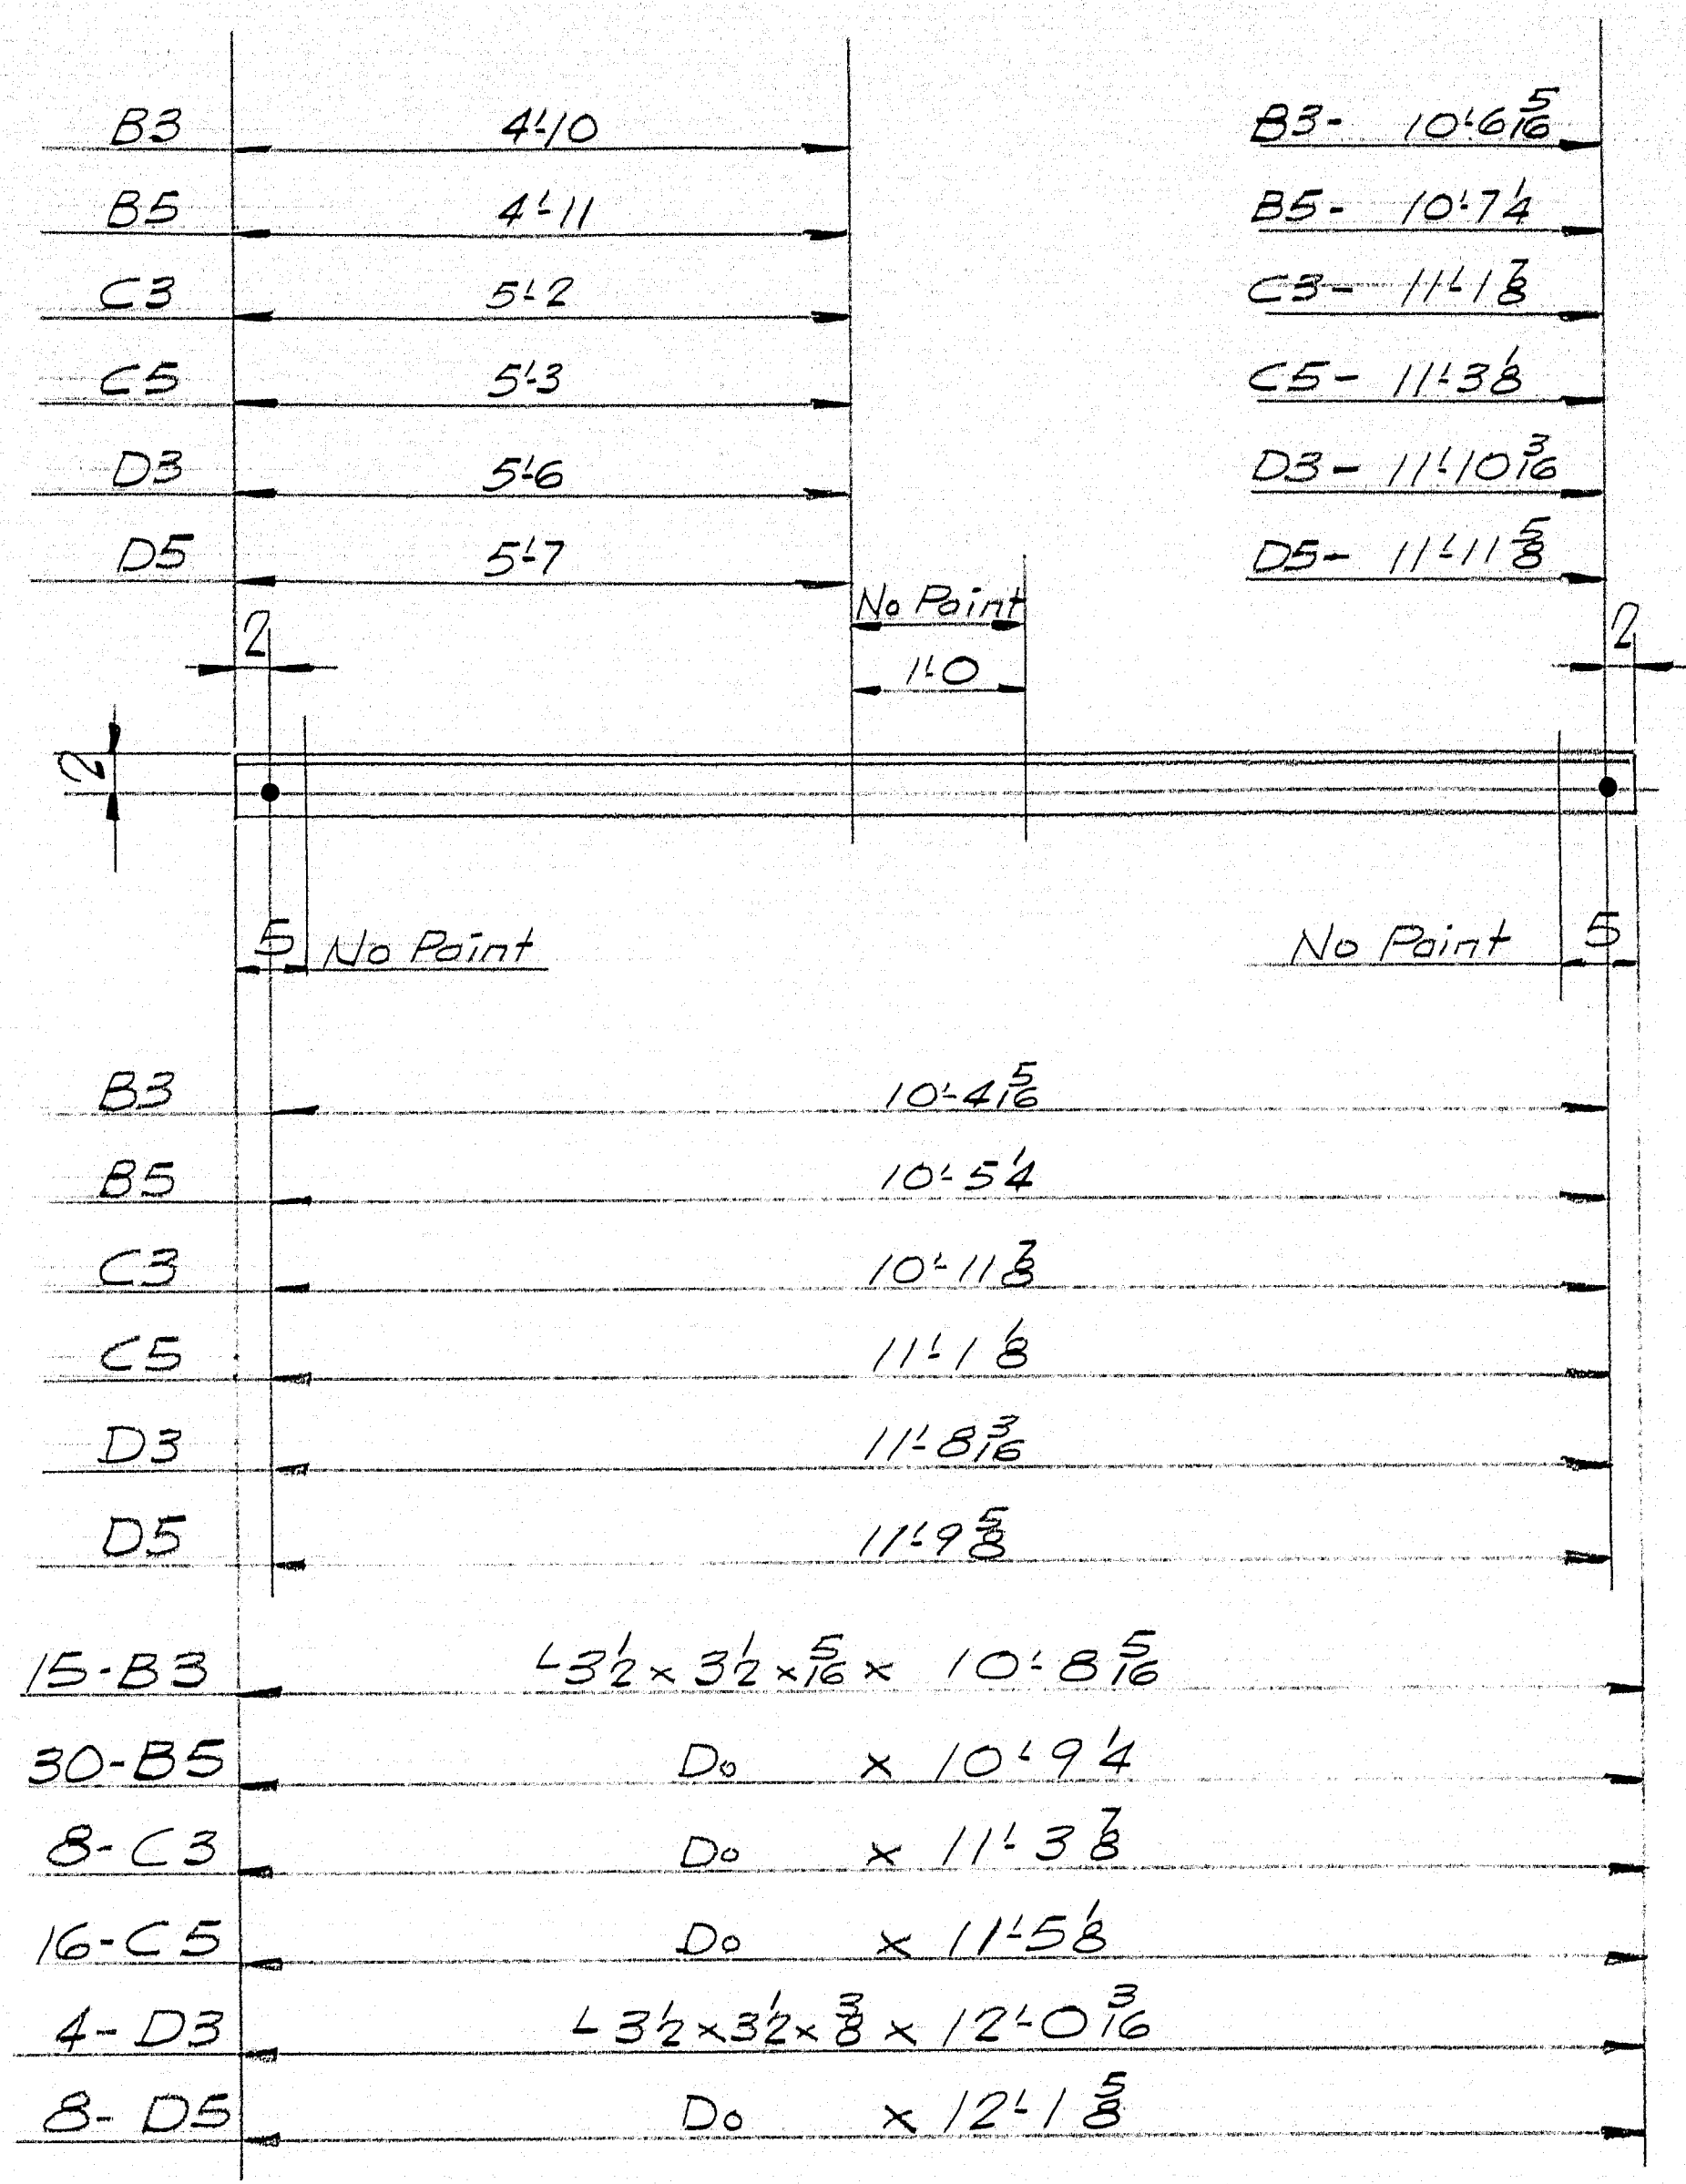 B3 4'-10 B3- 10'-6 5/16
B5 4'-11 B5- 10'-7 1/4
C3 5'-2 C3- 11'-1 7/8
C5 5'-3 C5- 11'-3 1/8
D3 5'-6 D3- 11'-10 3/16
D5 5'-7 D5- 11'-11 5/8
No Paint
2 1'-0 2
2
5 No Paint No Paint 5
B3 10'-4 5/16
B5 10'-5 1/4
C3 10'-11 7/8
C5 11'-1 1/8
D3 11'-8 3/16
D5 11'-9 5/8
15-B3 L 3 1/2 x 3 1/2 x 5/16 x 10'-8 5/16
30-B5 Do x 10'-9 1/4
8-C3 Do x 11'-3 7/8
16-C5 Do x 11'-5 1/8
4-D3 L 3 1/2 x 3 1/2 x 3/8 x 12'-0 3/16
8-D5 Do x 12'-1 5/8